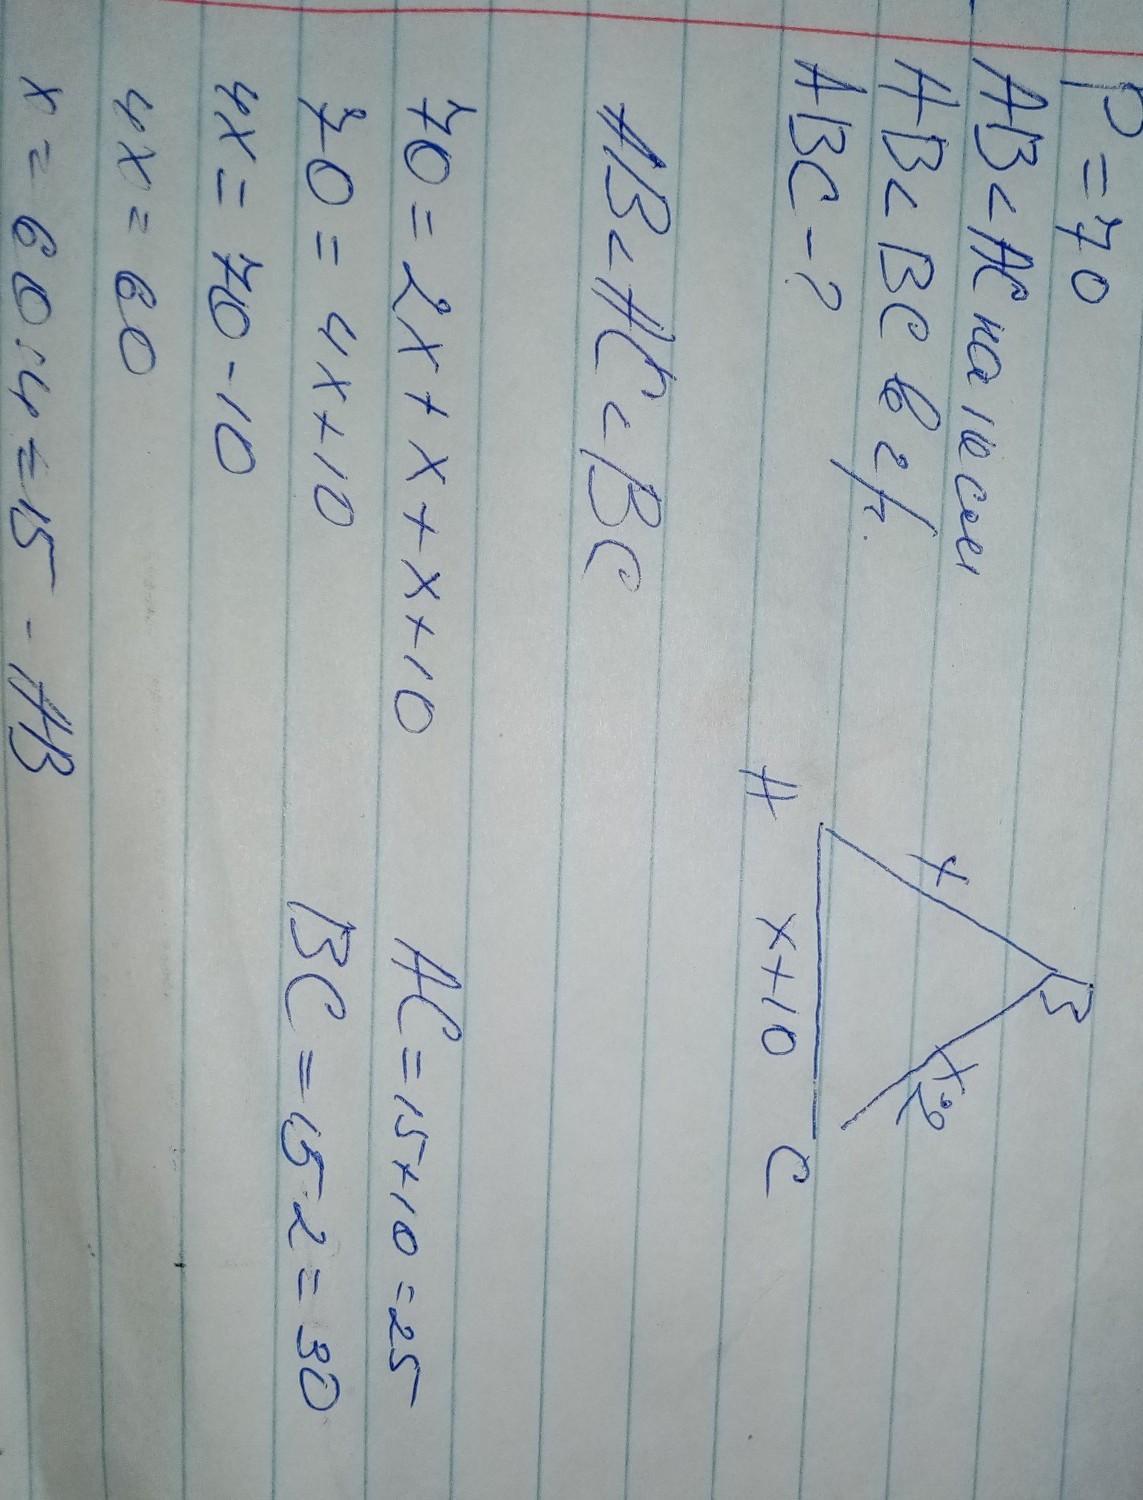 P = 70
AB < AC на 10 см
AB < BC в 2 р.
ABC - ?
B
x
x·2
A
x+10
C
AB < AC < BC
70 = 2x + x + x + 10
70 = 4x + 10
4x = 70 - 10
4x = 60
x = 60 : 4 = 15 - AB
AC = 15 + 10 = 25
BC = 15·2 = 30